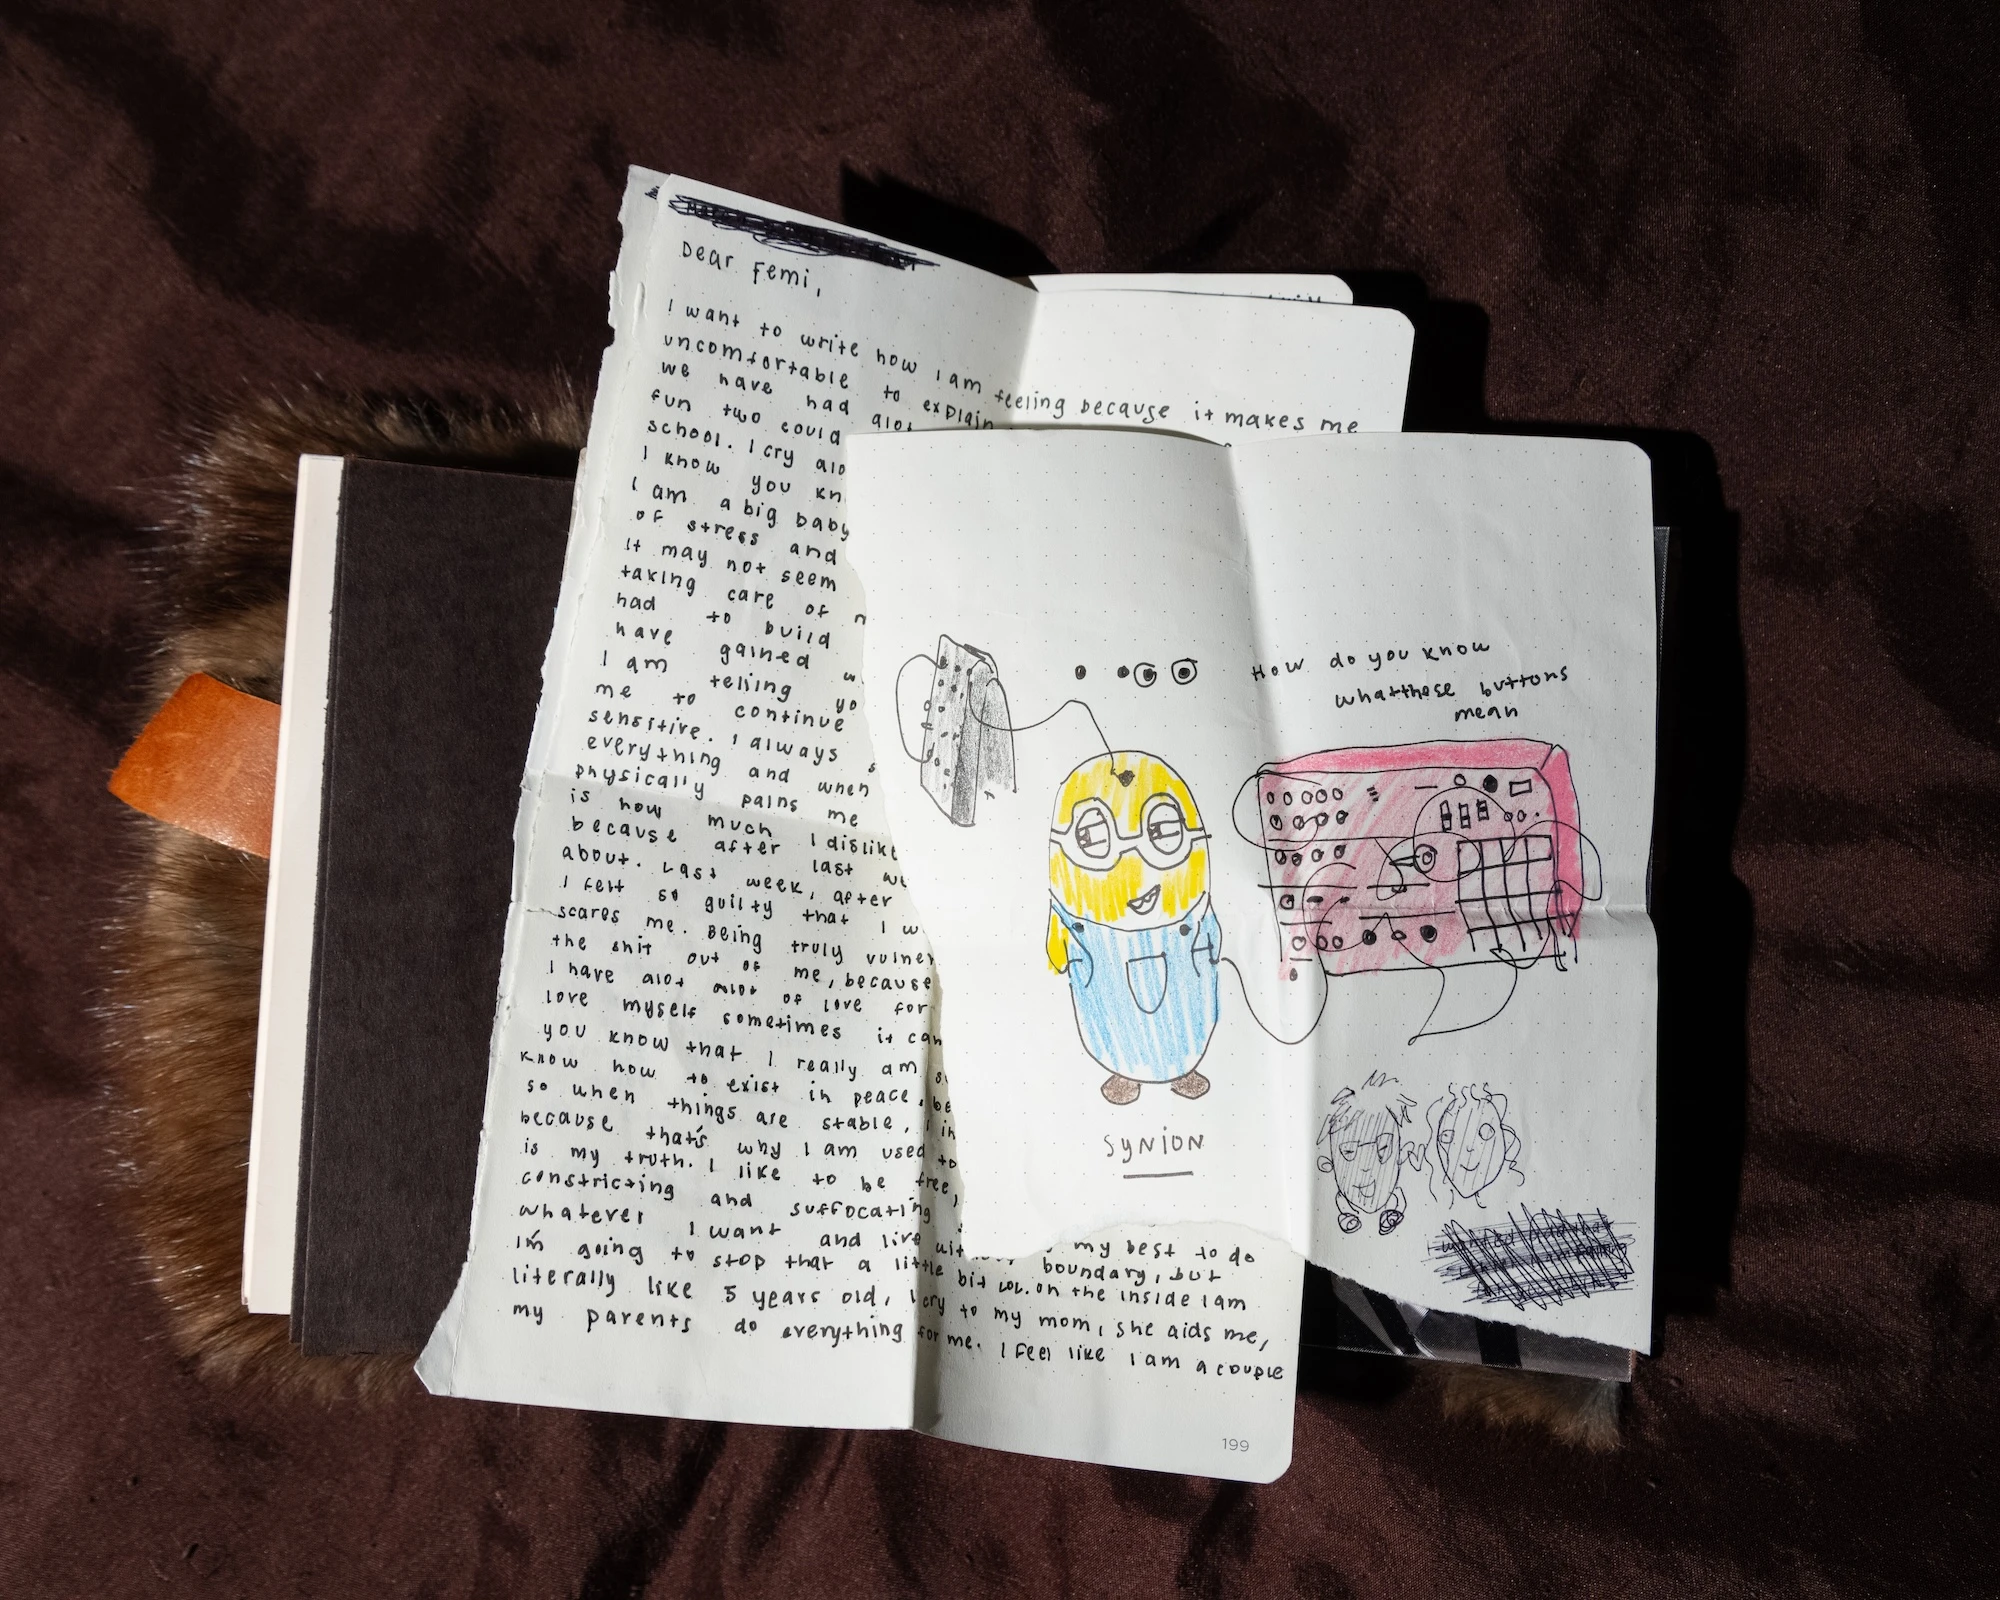 Dear Femi,
I want to write how I am feeling because it makes me
uncomfortable to explain
we have had alot
fun two could
school. I cry alo
I know you kn
I am a big baby
of stress and
it may not seem
taking care of
had to build
have gained
I am telling yo
me to continue
sensitive. I always s
everything and when
physically pains me
is how much I dislike
because after last w
about. Last week, after
I felt so guilty that I w
scares me. Being truly vulner
the shit out of me, because
I have alot alot of love for
love myself sometimes it can
you know that I really am s
know how to exist in peace, be
so when things are stable, I in
because that's why I am used to
is my truth. I like to be free,
constricting and suffocating
whatever I want and live my best to do
I'm going to stop that a little boundary, but
literally like 5 years old, I bit lol. on the inside I am
my parents do everything cry to my mom, she aids me,
for me. I feel like I am a couple
199
How do you know
whatthese buttons
mean
SYNION